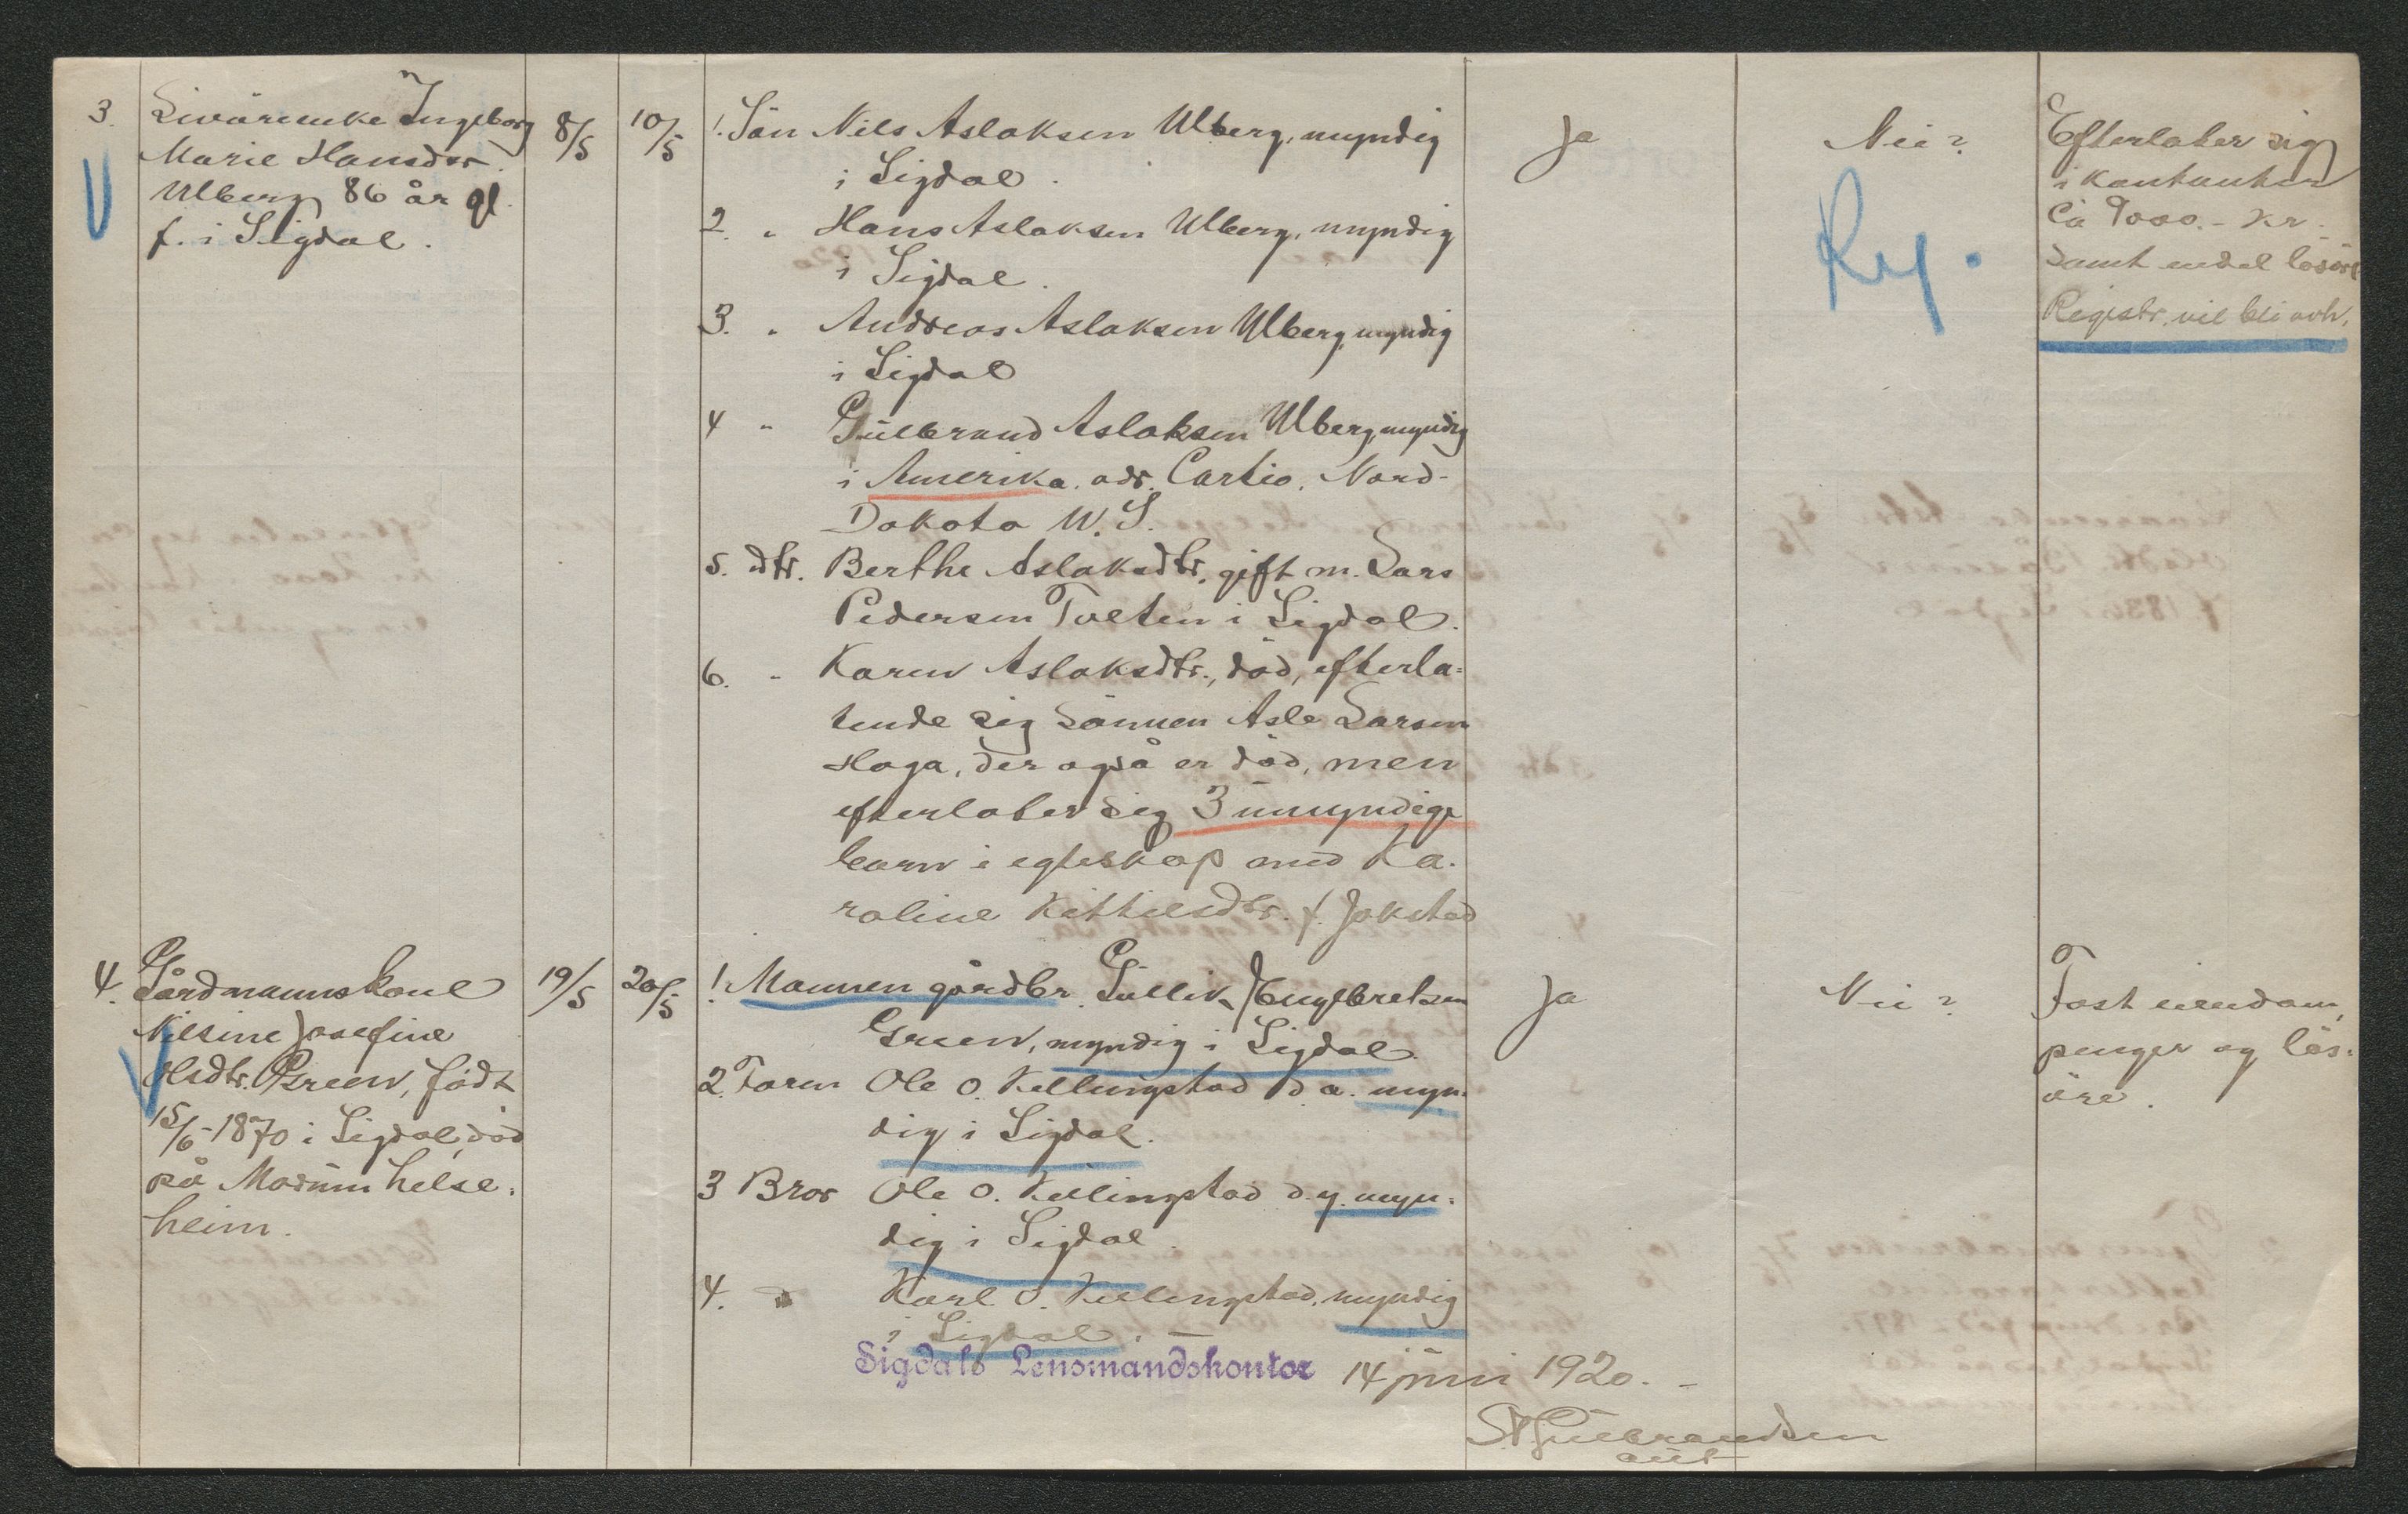 3.
Livöreenke Ingeborg
Marie Hansdtr.
Ulberg 86 år gl.
f. i Sigdal.
8/5
10/5
1. Sön Nils Aslaksen Ulberg, myndig
i Sigdal.
2. " Hans Aslaksen Ulberg, myndig
i Sigdal.
3. " Andreas Aslaksen Ulberg, myndig
i Sigdal
4 " Gulbrand Aslaksen Ulberg, myndig
i Amerika. adr. Nord-
Dakota W. S.
5. dtr. Berthe Aslaksdtr, gift m. Lars
Pedersen Tveten i Sigdal.
6. " Karen Aslaksdtr., död, efterla-
tende sig sönnen Asle Larsen
Haga, der også er död, men
efterlater sig 3 umyndige
barn i egteskap med Ka-
roline Kittilsdtr. f. Jokstad
Ja
Nei?
Reg.
Efterlater sig
i kontanter
Ca 9000.- Kr.
Samt endel lösöre
Registr. vil bli avh.
4.
Gårdmannskone
Nilsine Josefine
Olsdtr. Green, födt
15/6-1870 i Sigdal, död
på Modum helse-
heim.
19/5
20/5
1. Mannen gårdbr. Gullik Engebretsen
Green, myndig i Sigdal
2. Faren Ole O. Kellingstad d.e. myn-
dig i Sigdal.
3 Bror Ole O. Kellingstad d.y. myn-
dig i Sigdal.
4. " Karl O. Kellingstad, myndig
i Sigdal. —
Ja
Nei?
Fast eiendom,
penger og lös-
öre.
Sigdals Lensmandskontor 14 juni 1920. -
Gulbrandsen
aut